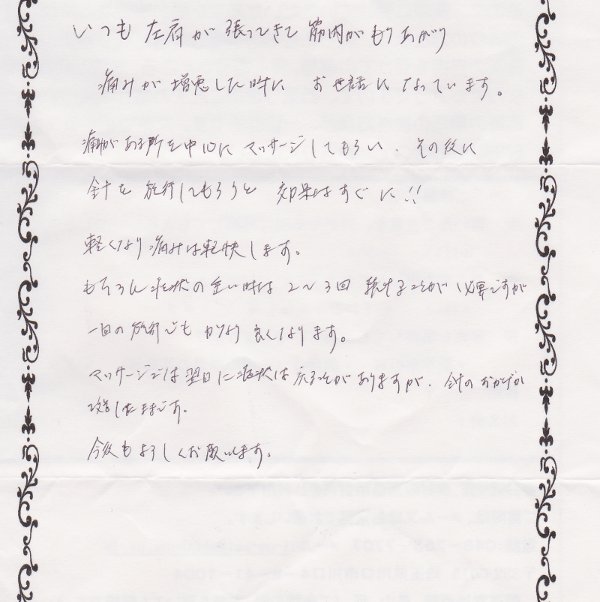 いつも 左肩が 張ってきて 筋肉がもりあがり
痛みが 増悪した時に お世話になっています。
痛みがある所を中心に マッサージしてもらい、その後に
針を 施術してもらうと 効果はすぐに!!
軽くなり 痛みは軽快します。
もちろん 症状の重い時は 2～3回 続けることが 必要ですが
一回の施術でも かなり 良くなります。
マッサージでは 翌日に 症状は戻る事がありますが、針のおかげか
したままです。
今後もよろしくお願いします。